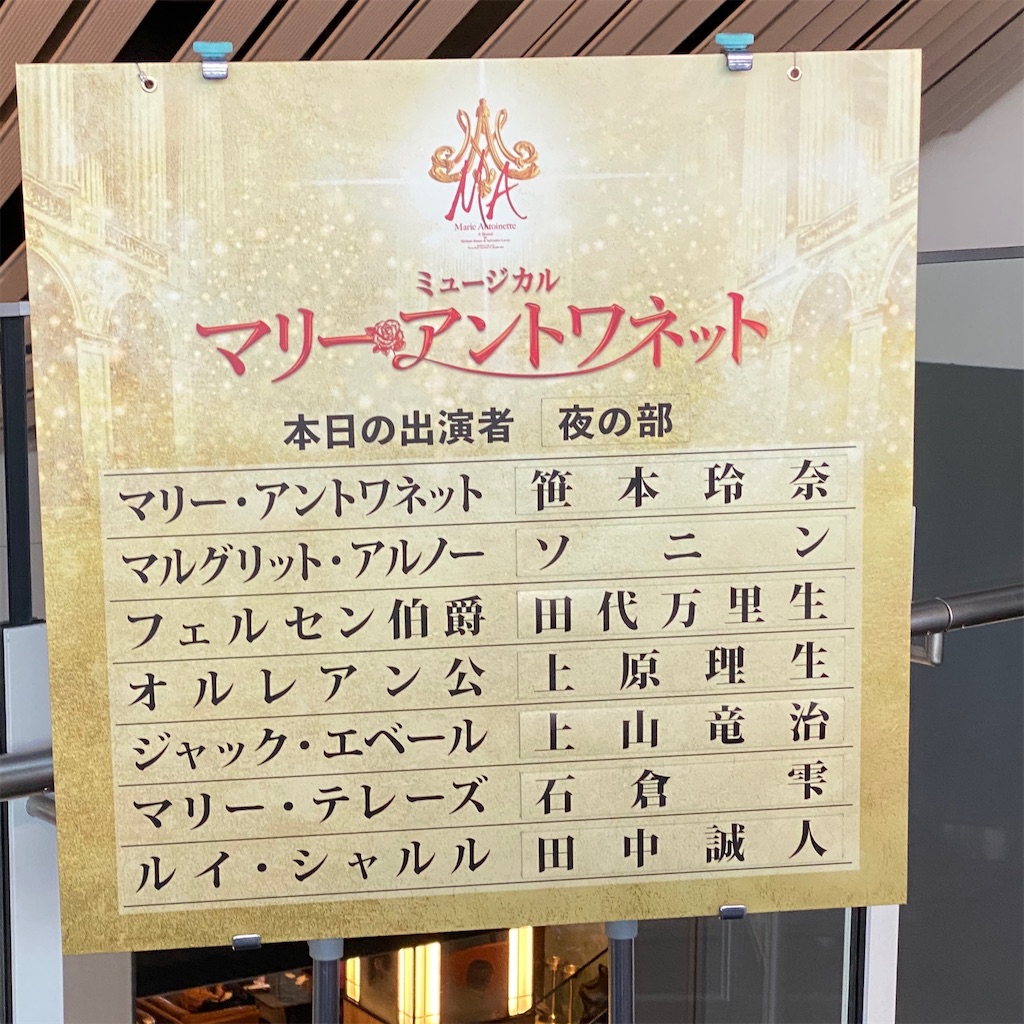 MA
Marie Antoinette
ミュージカル
マリー・アントワネット
本日の出演者 夜の部
マリー・アントワネット 笹本玲奈
マルグリット・アルノー ソニン
フェルセン伯爵 田代万里生
オルレアン公 上原理生
ジャック・エベール 上山竜治
マリー・テレーズ 石倉雫
ルイ・シャルル 田中誠人